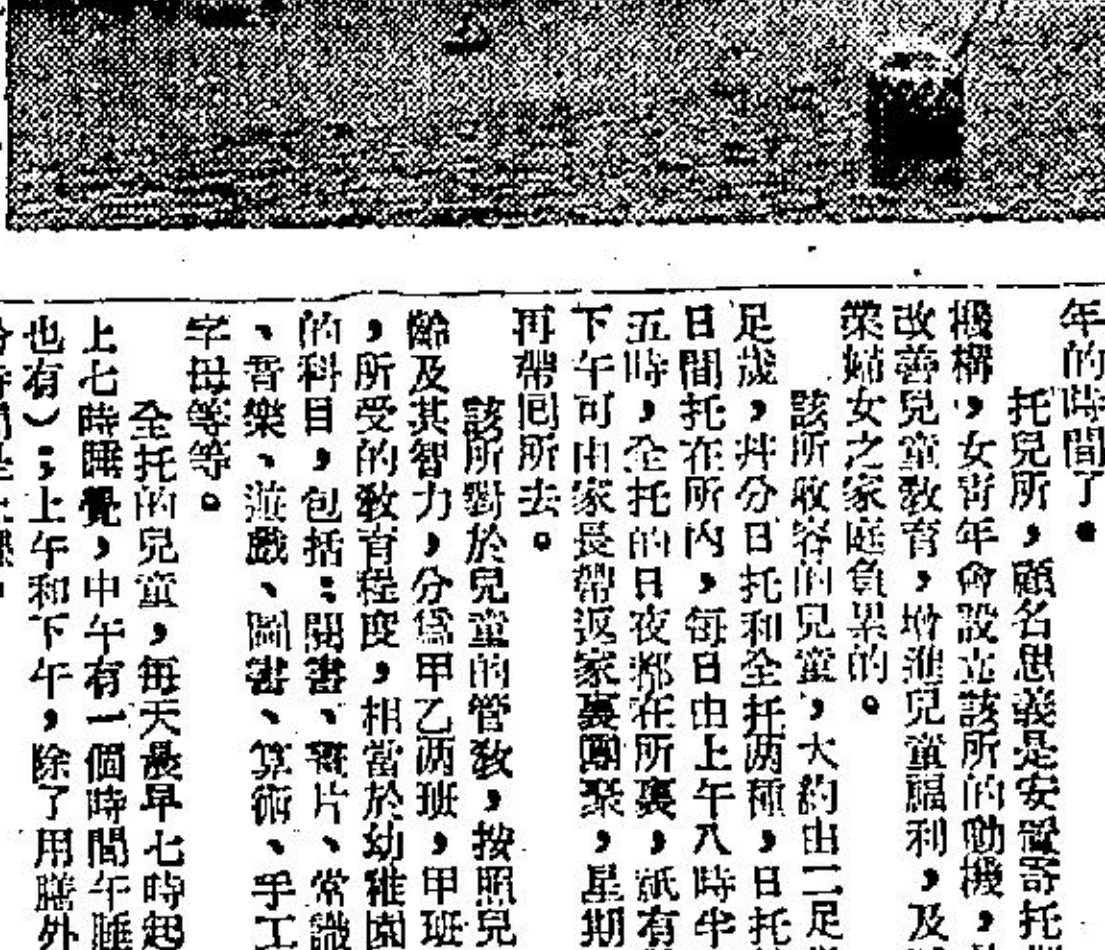 年的時間了。
托兒所，顧名思義是安置寄托
機構，女青年會設立該所的動機，
改善兒童敎育，增進兒童福利，及
業婦女之家庭負累的。
該所收容的兒童，大約由二足
足歲，幷分日托和全托两種，日托
日間托在所內，每日由上午八時半
五時，全托的日夜都在所裏，祇有
下午可由家長帶返家裏團聚，星期
再帶囘所去。
該所對於兒童的管敎，按照兒
齡及其智力，分爲甲乙两班，甲班
，所受的敎育程度，相當於幼稚園
的科目，包括：閱書、片、常識
、音樂、遊戲、圖書、算術、手工
字母等等。
全托的兒童，每天最早七時起
上七時睡覺，中午有一個時間午睡
也有）；上午和下午，除了用膳外